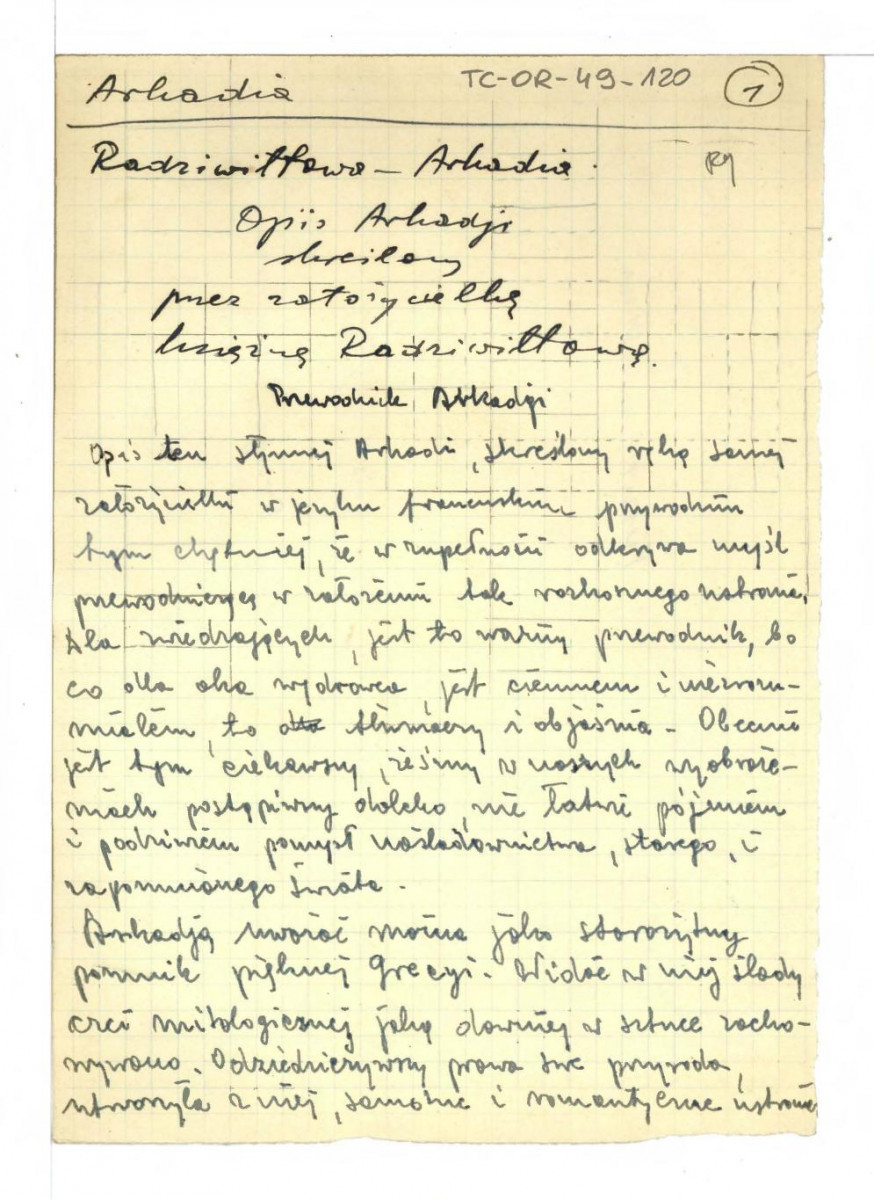 Arkadia
TC-OR-49-120
1
Radziwiłłowa – Arkadia.
Opis Arkadji
skreślony
przez założycielkę
księżnę Radziwiłłową.
Przewodnik Arkadji
Opis ten słynnej Arkadii, skreślony ręką samej
założycielki w języku francuskim przywodzim
tym chętniej, że w zupełności odkrywa myśl
przewodniczącą w założeniu tak rozkosznego ustronia.
Dla zwiedzających, jest to ważny przewodnik, bo
co dla oka wędrowca, jest ciemnem i niezrozu-
miałem, to tłumaczy i objaśnia – Obecnie
jest tym ciekawszy, żeśmy w naszych wyobraże-
niach postąpiwszy daleko, nie łatwie pojmiem
i podziwiem pomysł naśladownictwa, starego, i
zapomnianego świata.
Arkadją uważać można jako starożytny
pomnik pięknej Grecyi. Widać w niej ślady
czci mitologicznej jaką dawniej w sztuce zacho-
wywano. Odziedziczywszy prawa swe przyroda,
utworzyła z niej, samotne i romantyczne ustronie